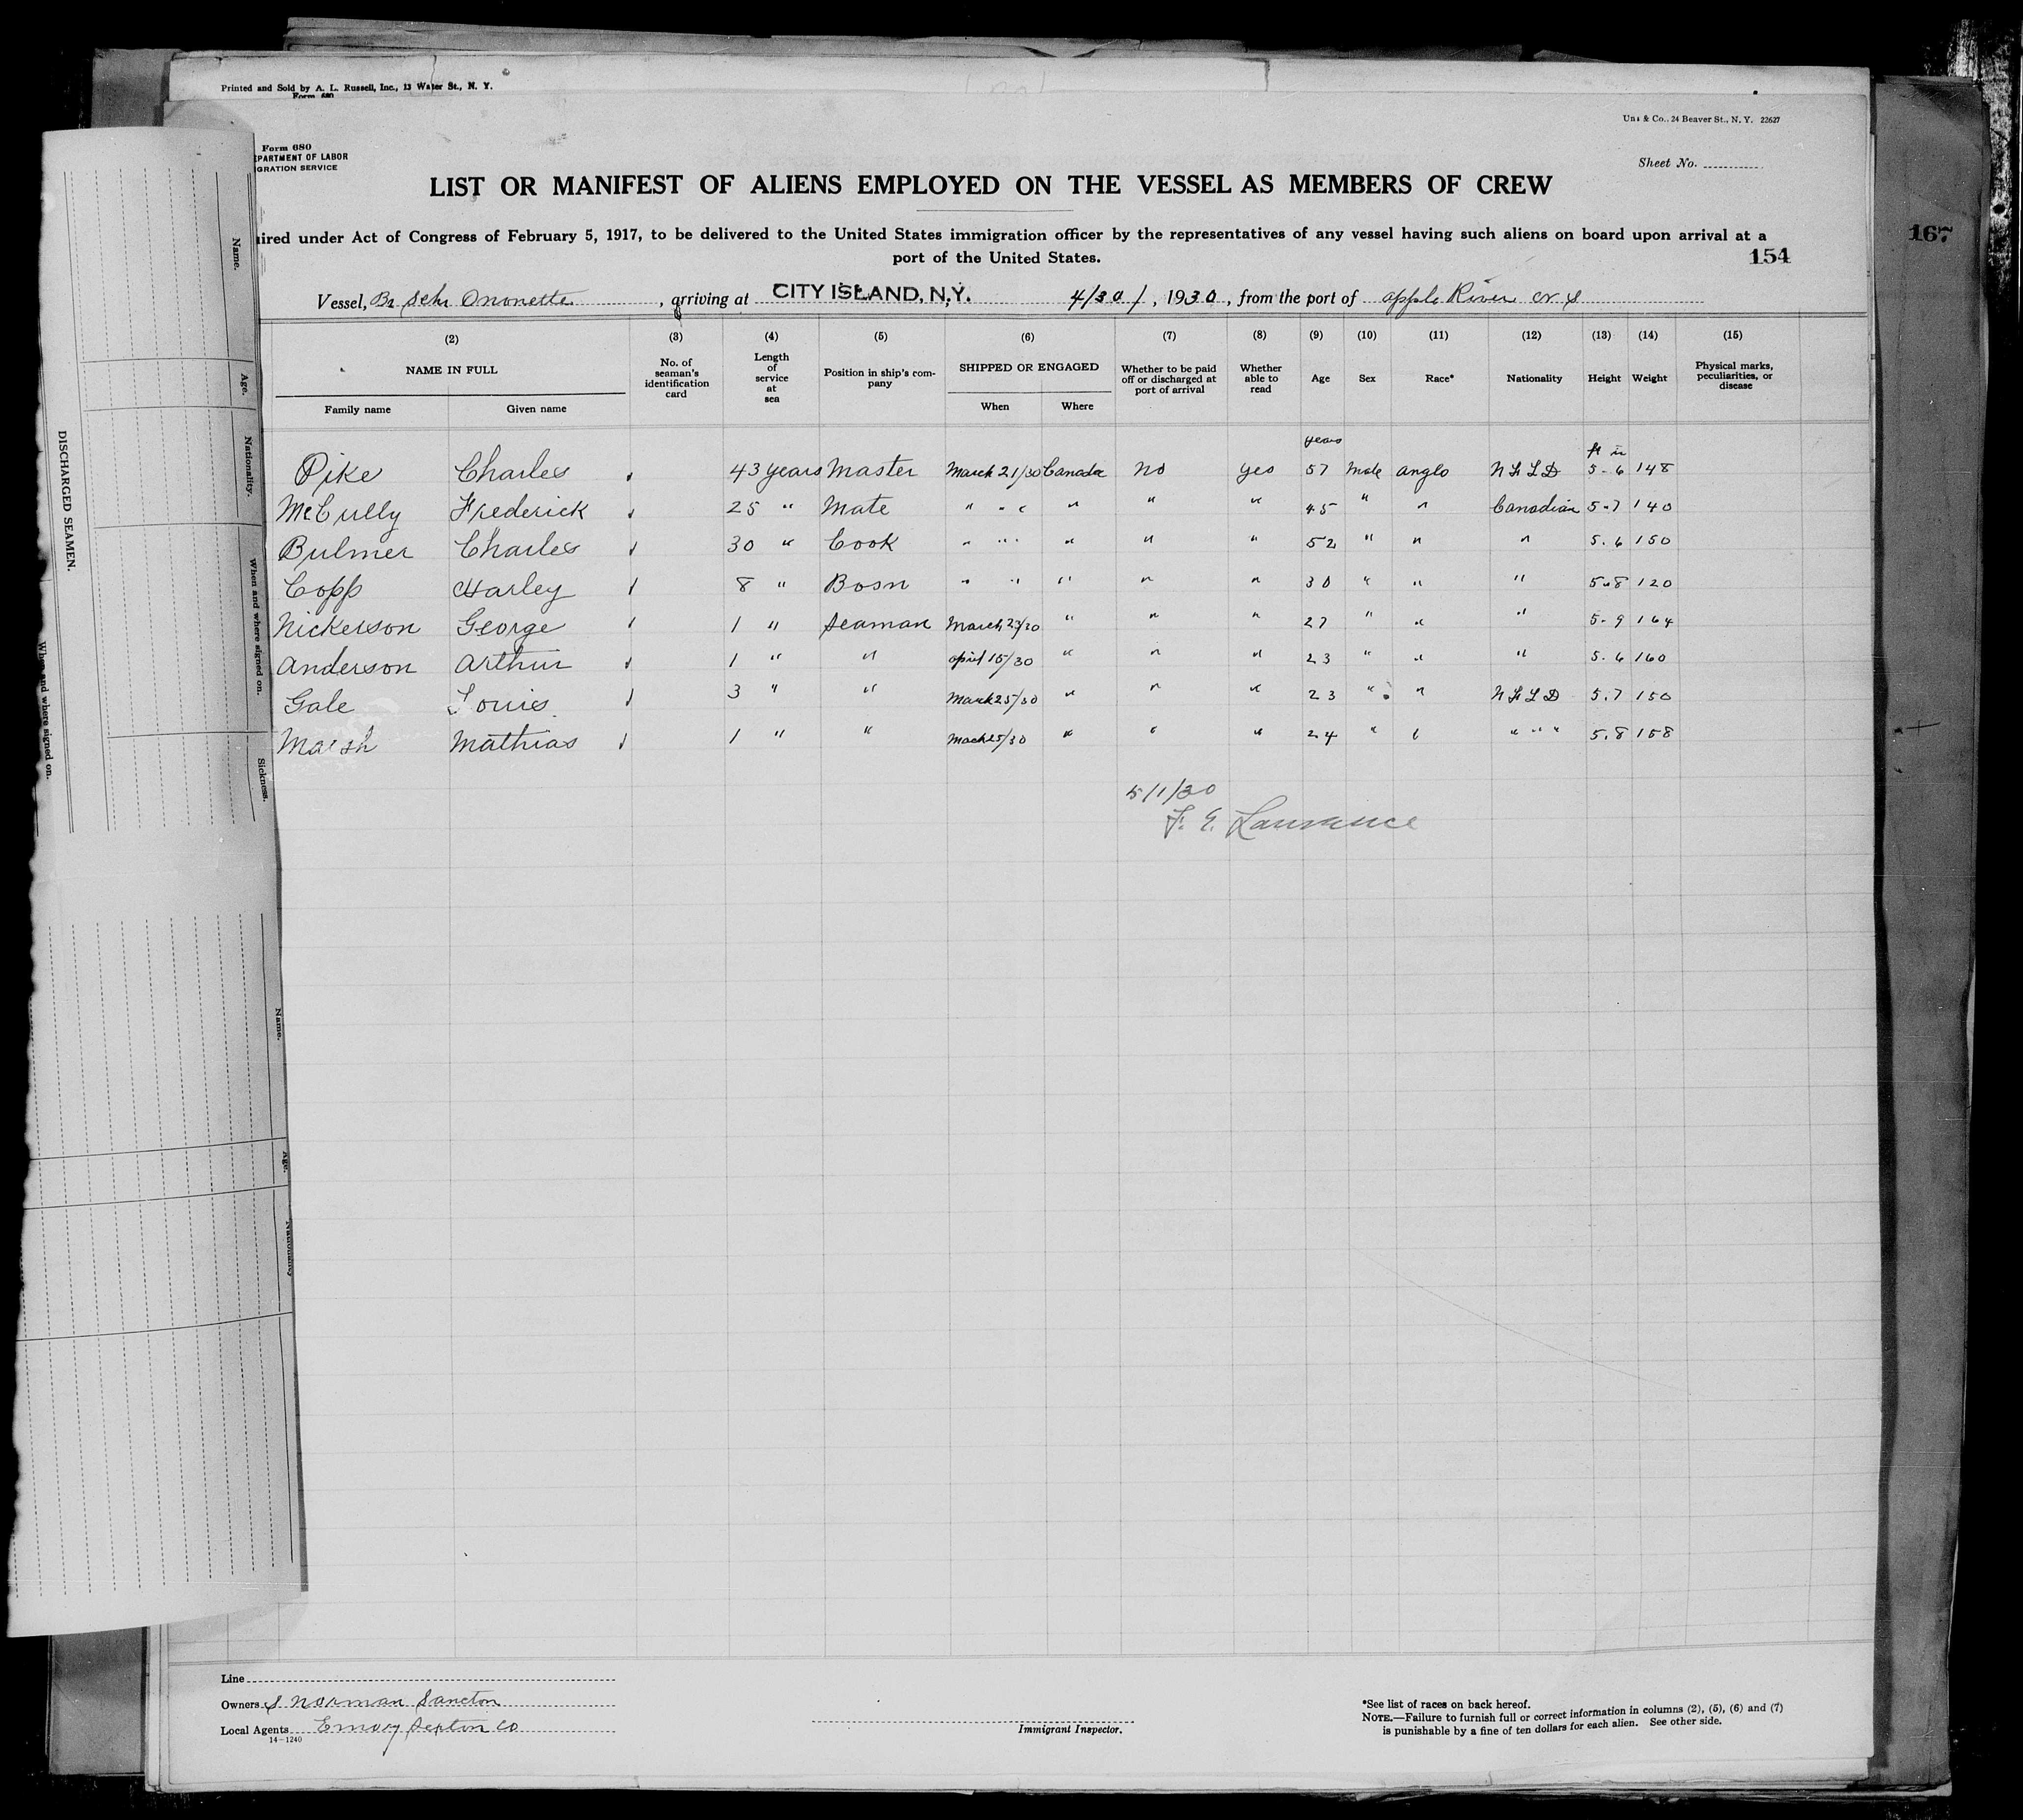 Printed and Sold by A. L. Russell, Inc., 13 Water St., N. Y.
Form 680
& Co., 24 Beaver St., N. Y. 22627
Form 680
EPARTMENT OF LABOR
IGRATION SERVICE
Sheet No.
LIST OR MANIFEST OF ALIENS EMPLOYED ON THE VESSEL AS MEMBERS OF CREW
ired under Act of Congress of February 5, 1917, to be delivered to the United States immigration officer by the representatives of any vessel having such aliens on board upon arrival at a
port of the United States.
154
167
Vessel, Br Schr Ononette, arriving at CITY ISLAND, N.Y. 4/30/, 1930, from the port of apple River N S
(2) (3) (4) (5) (6) (7) (8) (9) (10) (11) (12) (13) (14) (15)
NAME IN FULL No. of seaman's identification card Length of service at sea Position in ship's company SHIPPED OR ENGAGED Whether to be paid off or discharged at port of arrival Whether able to read Age Sex Race* Nationality Height Weight Physical marks, peculiarities, or disease
Family name Given name When Where
years ft in
Pike Charles 43 years Master March 21/30 Canada No yes 57 Male anglo N F L D 5-6 148
McCully Frederick 25 " Mate " " " " " " 45 " " Canadian 5-7 140
Bulmer Charles 30 " Cook " " " " " " 52 " " " 5.6 150
Copp Harley 8 " Bosn " " " " " 30 " " " 5-8 120
Nickerson George 1 " Seaman March 23/30 " " " 27 " " " 5-9 164
Anderson Arthur 1 " " april 15/30 " " " 23 " " " 5.6 160
Gale Louis 3 " " March 25/30 " " " 23 " " N F L D 5.7 150
Marsh Mathias 1 " " Mach 25/30 " " " 24 " " " " " 5.8 158
5/1/30
F. E. Lawrance
DISCHARGED SEAMEN.
Name.
Age.
Nationality.
When and where signed on.
Sickness.
When and where signed on.
Name.
Age.
Nationality
Line
Owners S Norman Sancton
Local Agents Emory Sexton Co
14-1240
Immigrant Inspector.
*See list of races on back hereof.
NOTE.—Failure to furnish full or correct information in columns (2), (5), (6) and (7)
is punishable by a fine of ten dollars for each alien. See other side.